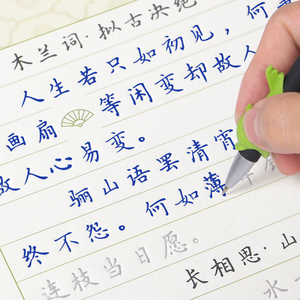 木兰词·拟古决绝
人生若只如初见，何
画扇 等闲变却故人
故人心易变。
骊山语罢清宵
终不怨。何如薄
连枝当日愿。
长相思·山
水